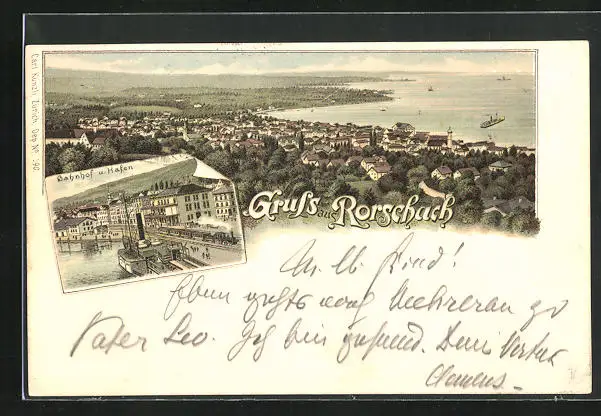 Carl Künzli, Zürich, Dep. No
Bahnhof u. Hafen
Gruss aus Rorschach
Kind!
Eben gehts nach Mehrerau zu
Pater Leo. Ich bin gesund. Dein Vetter
Clemens